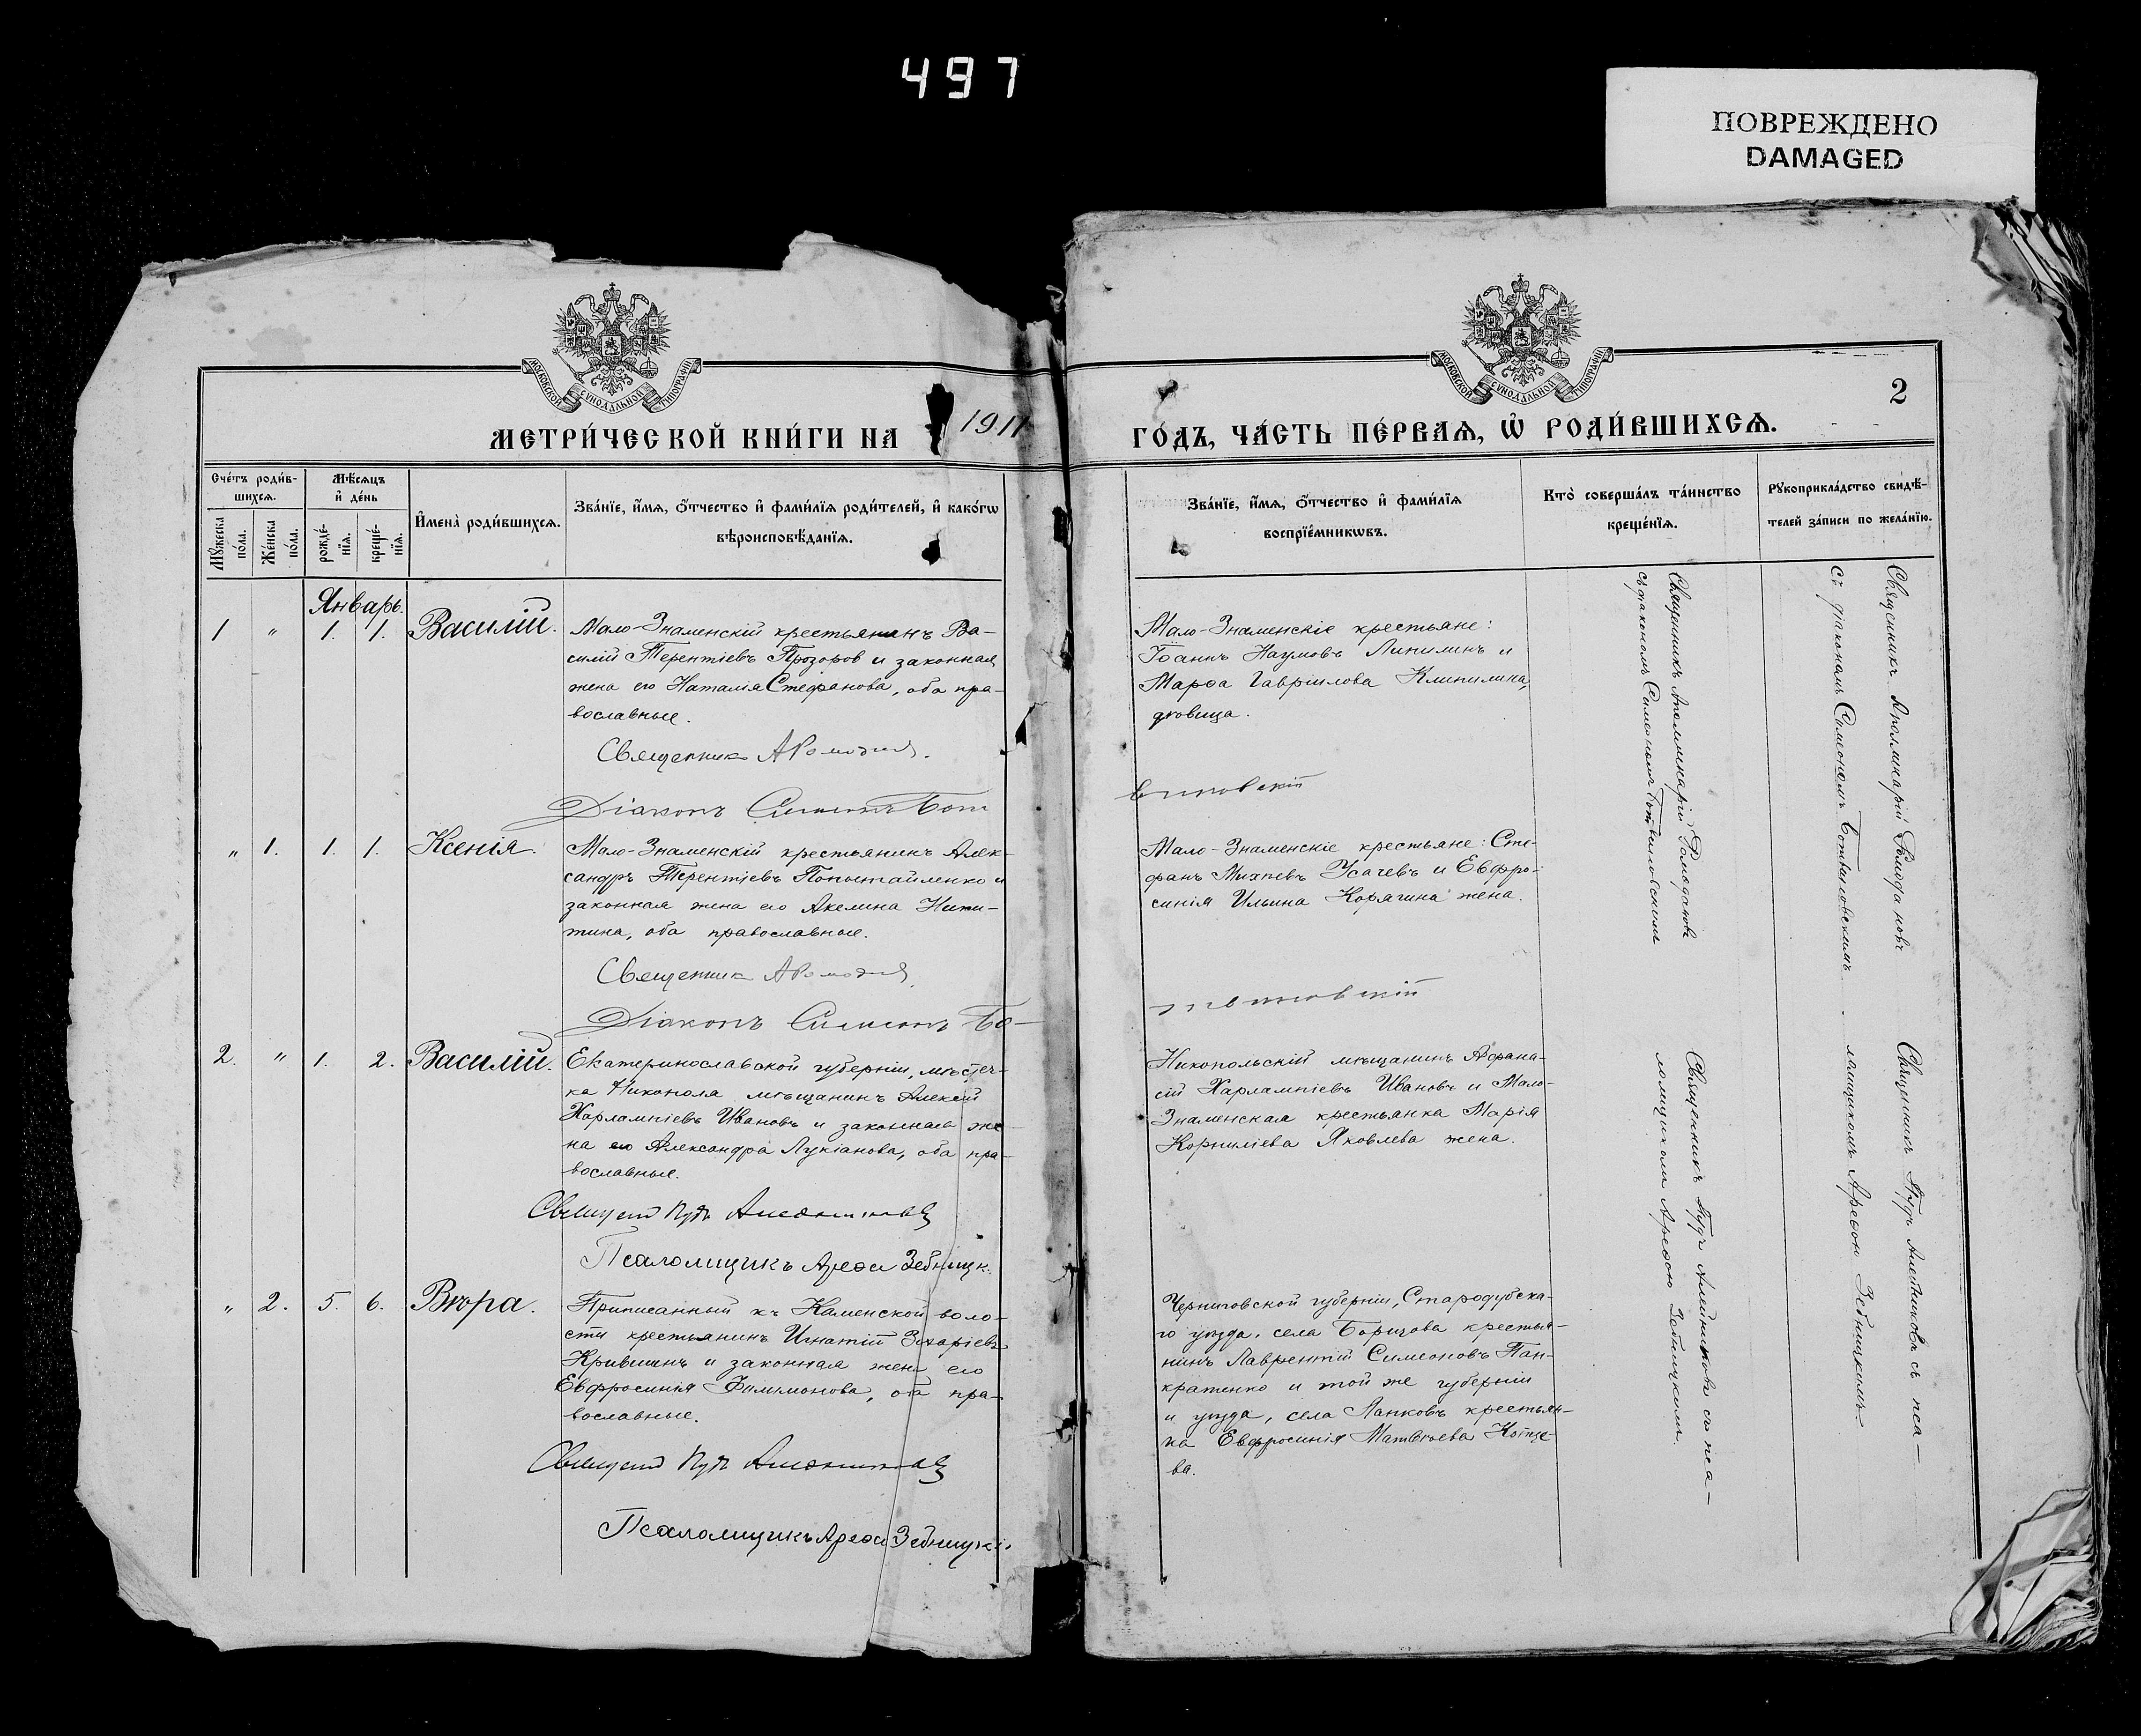 497
ПОВРЕЖДЕНО
DAMAGED
МОСКОВСКОЙ СѴНОДАЛЬНОЙ ТИПОГРАФІИ
МОСКОВСКОЙ СѴНОДАЛЬНОЙ ТИПОГРАФІИ
2
МЕТРИ́ЧЕСКОЙ КНИ́ГИ НА 1911
ГО́ДЪ, ЧА́СТЬ ПЕ́РВАѦ, Ѡ҆ РОДИ́ВШИХСѦ.
Сче́тъ роди́в-
шихсѧ.
Мѣ́сѧцъ
и҆ де́нь
Мꙋ́жеска
по́ла.
Же́нска
по́ла.
рожде́-
нїѧ.
креще́-
нїѧ.
И҆мена̀ роди́вшихсѧ.
Зва́нїе, и҆́мѧ, ѻ҆́тчество и҆ фами́лїѧ роди́телей, и҆ како́гѡ
вѣроисповѣ́данїѧ.
Зва́нїе, и҆́мѧ, ѻ҆́тчество и҆ фами́лїѧ
воспрїе́мникѡвъ.
Кто̀ соверша́лъ та́инство
креще́нїѧ.
Рꙋкоприкла́дство свидѣ́-
телей за́писи по жела́нїю.
Январь.
1 " 1. 1. Василій.
Мало-Знаменскій крестьянинъ Ва-
силій Терентіевъ Прозоров и законная
жена его Наталія Стефанова, оба пра-
вославные.
Священник А Ромодан
Діаконъ Симеонъ Бот
Мало-Знаменскіе крестьяне:
Іоаннъ Наумовъ Липилинъ и
Марѳа Гавріилова Клипилина,
дѣвица.
виновскій
Священникъ Аполлинарій Ромодановъ
съ діакономъ Симеономъ Ботвиновскимъ
Священникъ Аполлинарій Ромодановъ
съ діакономъ Симеономъ Ботвиновскимъ
" 1. 1. 1. Ксенія.
Мало-Знаменскій крестьянинъ Алек-
сандръ Терентіевъ Попытайленко и
законная жена его Акелина Ники-
тина, оба православные.
Священник А Ромодан
Діаконъ Симеонъ Бо-
Мало-Знаменскіе крестьяне: Сте-
фанъ Михеевъ Усачевъ и Евфро-
синія Ильина Корягина жена.
твиновскій
2. " 1. 2. Василій.
Екатеринославской губерніи, мѣстеч-
ка Никополя мѣщанинъ Алексій
Харлампіевъ Ивановъ и законная же
на его Александра Лукіанова, оба пра-
вославные.
Псаломщикъ Ареѳа Зебницк.
Никопольскій мѣщанинъ Аѳана-
сій Харлампіевъ Ивановъ и Мало-
Знаменская крестьянка Марія
Корниліева Яковлева жена.
Священникъ Алейниковъ съ пса-
ломщикомъ Ареѳою Зебницкимъ.
Священникъ Алейниковъ съ пса-
ломщикомъ Ареѳою Зебницкимъ.
" 2. 5. 6. Вѣра.
Приписанный къ Каменской воло-
сти крестьянинъ Игнатій Захаріевъ
Крившинъ и законная жена его
Евфросинія Филимонова, оба пра-
вославные.
Псаломщикъ Ареѳа Зебницкі.
Черниговской губерніи, Стародубска-
го уѣзда, села Борщова крестья-
нинъ Лаврентій Симеоновъ Пан-
кратенко и той же губерніи
и уѣзда, села Панковъ крестьян-
ка Евфросинія Матвѣева Котце-
ва.